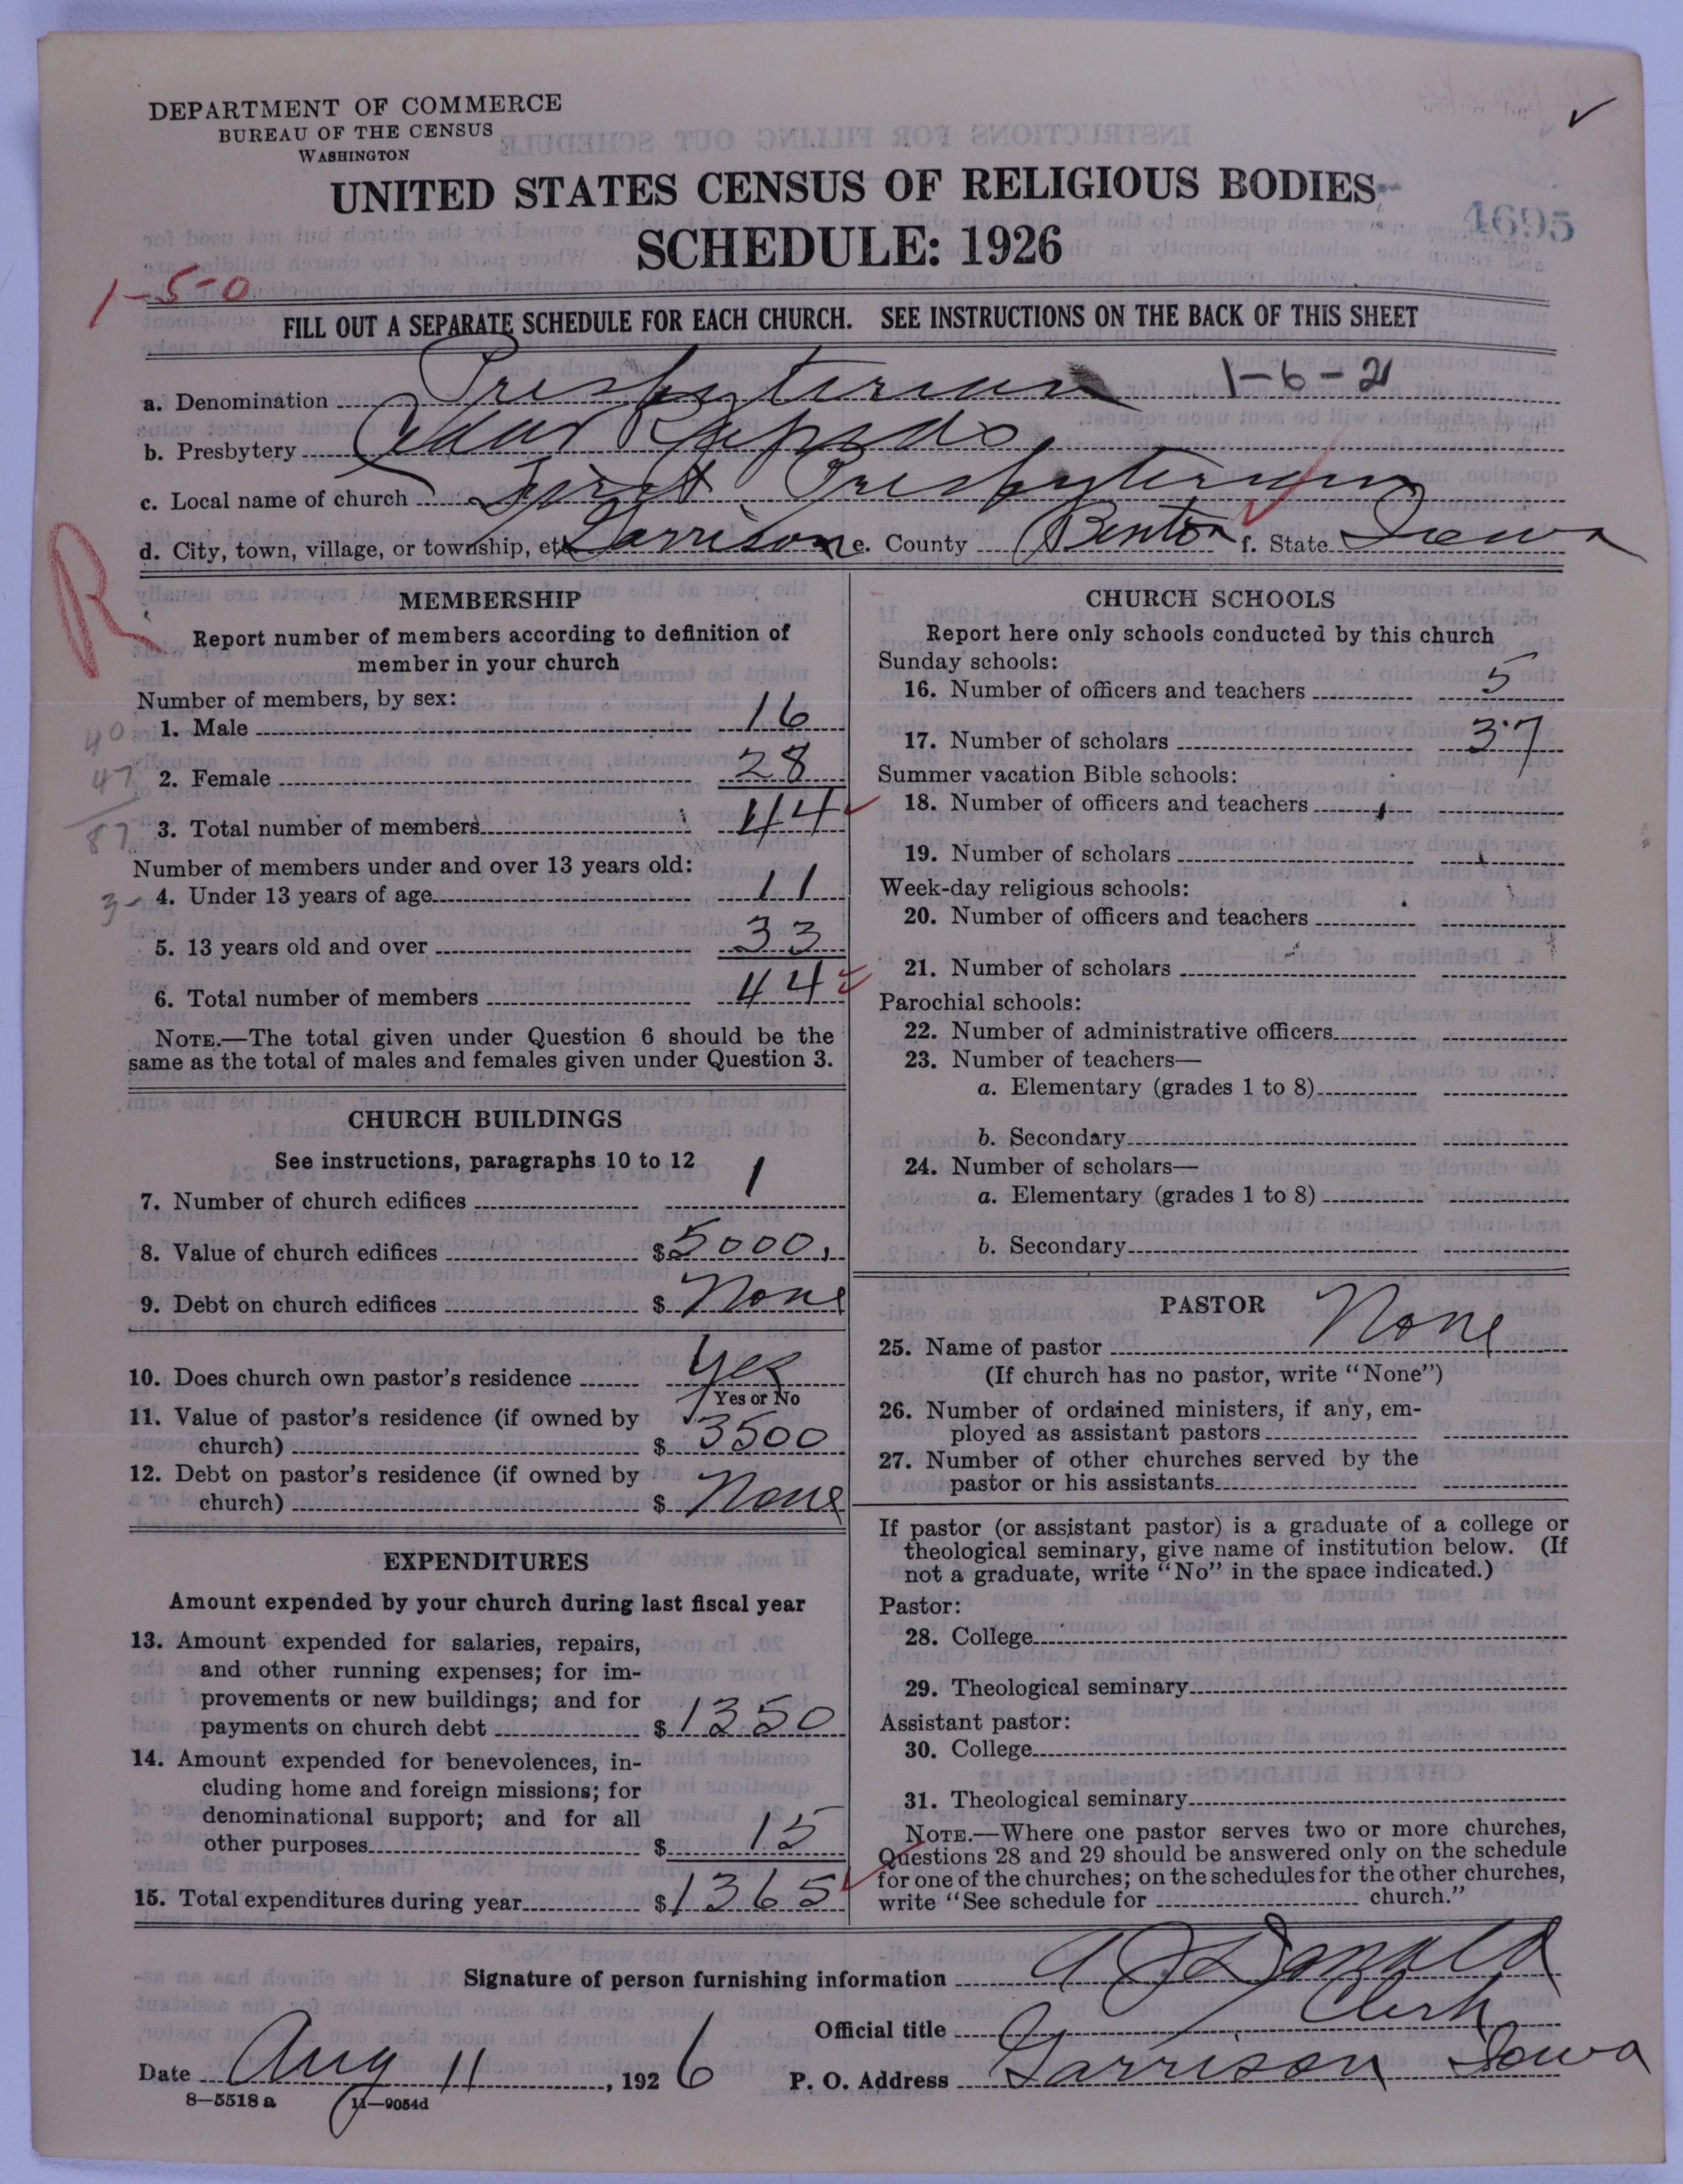 DEPARTMENT OF COMMERCE
BUREAU OF THE CENSUS
WASHINGTON
UNITED STATES CENSUS OF RELIGIOUS BODIES
4695
SCHEDULE: 1926
1-5-0
FILL OUT A SEPARATE SCHEDULE FOR EACH CHURCH. SEE INSTRUCTIONS ON THE BACK OF THIS SHEET
1-6-21
a. Denomination Presbyterian
b. Presbytery Cedar Rapids.
c. Local name of church First Presbyterian
d. City, town, village, or township, etc. Garrison e. County Benton f. State Iowa
R
MEMBERSHIP
Report number of members according to definition of
member in your church
Number of members, by sex:
1. Male 16
40
2. Female 28
47
3. Total number of members 44
87
Number of members under and over 13 years old:
4. Under 13 years of age 11
3-
5. 13 years old and over 33
6. Total number of members 44
NOTE.—The total given under Question 6 should be the
same as the total of males and females given under Question 3.
CHURCH BUILDINGS
See instructions, paragraphs 10 to 12
7. Number of church edifices 1
8. Value of church edifices $5000.
9. Debt on church edifices $ None
10. Does church own pastor's residence Yes
Yes or No
11. Value of pastor's residence (if owned by
church) $ 3500
12. Debt on pastor's residence (if owned by
church) $ None
EXPENDITURES
Amount expended by your church during last fiscal year
13. Amount expended for salaries, repairs,
and other running expenses; for im-
provements or new buildings; and for
payments on church debt $ 1350
14. Amount expended for benevolences, in-
cluding home and foreign missions; for
denominational support; and for all
other purposes $ 15
15. Total expenditures during year $ 1365
CHURCH SCHOOLS
Report here only schools conducted by this church
Sunday schools:
16. Number of officers and teachers 5
17. Number of scholars 37
Summer vacation Bible schools:
18. Number of officers and teachers
19. Number of scholars
Week-day religious schools:
20. Number of officers and teachers
21. Number of scholars
Parochial schools:
22. Number of administrative officers
23. Number of teachers—
a. Elementary (grades 1 to 8)
b. Secondary
24. Number of scholars—
a. Elementary (grades 1 to 8)
b. Secondary
PASTOR
25. Name of pastor None
(If church has no pastor, write "None")
26. Number of ordained ministers, if any, em-
ployed as assistant pastors
27. Number of other churches served by the
pastor or his assistants
If pastor (or assistant pastor) is a graduate of a college or
theological seminary, give name of institution below. (If
not a graduate, write "No" in the space indicated.)
Pastor:
28. College
29. Theological seminary
Assistant pastor:
30. College
31. Theological seminary
NOTE.—Where one pastor serves two or more churches,
Questions 28 and 29 should be answered only on the schedule
for one of the churches; on the schedules for the other churches,
write "See schedule for church."
Signature of person furnishing information Donald
Official title Clerk
Date Aug 11, 1926 P. O. Address Garrison Iowa
8—5518 a 11—9054d